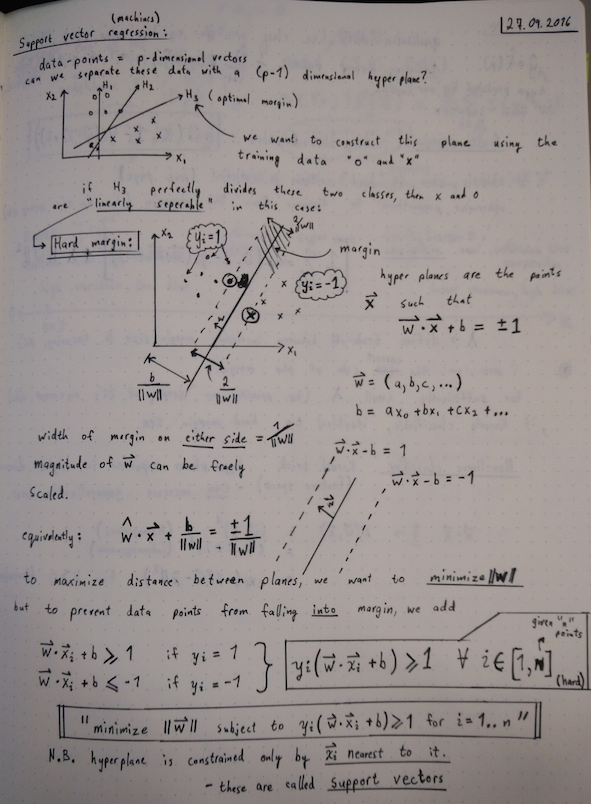 (machines)
Support vector regression:
27.09.2016
data-points = p-dimensional vectors
can we separate these data with a (p-1) dimensional hyperplane?
x₂
H₁
H₂
H₃ (optimal margin)
x₁
we want to construct this plane using the
training data "o" and "x"
if H₃ perfectly divides these two classes, then x and o
are "linearly seperable" in this case:
Hard margin:
x₂
yᵢ=1
2/||w||
margin
yᵢ=-1
w
x₁
b/||w||
2/||w||
hyper planes are the points
x⃗ such that
w⃗·x⃗ + b = ±1
w⃗ = (a,b,c,...)
b = ax₀+bx₁+cx₂+...
width of margin on either side = 1/||w||
magnitude of w⃗ can be freely
scaled.
w⃗·x⃗-b = 1
w⃗·x⃗-b = -1
equivalently: ŵ·x⃗ + b/||w|| = ±1/||w||
to maximize distance between planes, we want to minimize ||w||
but to prevent data points from falling into margin, we add
given "n"
points
w⃗·x⃗ᵢ+b ⩾ 1 if yᵢ = 1
w⃗·x⃗ᵢ+b ⩽ -1 if yᵢ = -1
yᵢ(w⃗·x⃗ᵢ+b) ⩾ 1 ∀ i ∈ [1,n]
(hard)
"minimize ||w⃗|| subject to yᵢ(w⃗·x⃗ᵢ+b) ⩾ 1 for i=1..n"
N.B. hyperplane is constrained only by x⃗ᵢ nearest to it.
- these are called support vectors